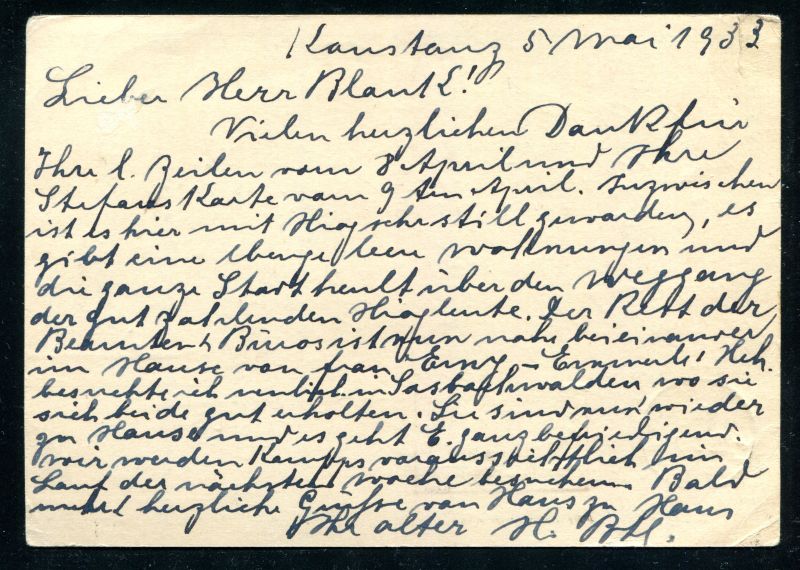 Konstanz 5 Mai 1933
Lieber Herr Blank!
Vielen herzlichen Dank für
Ihre l. Zeilen vom 8 April und Ihre
Stefans Karte vom 9 April. Inzwischen
ist es hier mit Hiag sehr still geworden, es
gibt eine Menge leere Wohnungen und
die ganze Stadt heult über den Weggang
der gut zahlenden Hiagleute. Der Rest der
Beamten & Büros ist nun nahe beieinander
im Hause von frau Emmerle,
besuchte ich neulich in Sasbachwalden wo sie
sich beide gut erholten. Sie sind nun wieder
zu Hause und es geht E. ganz befriedigend.
Wir werden Kamps voraussichtlich im
Lauf der nächsten Woche besuchen. Bald
mehr! herzliche Grüsse von Haus zu Haus
Ihr alter H.